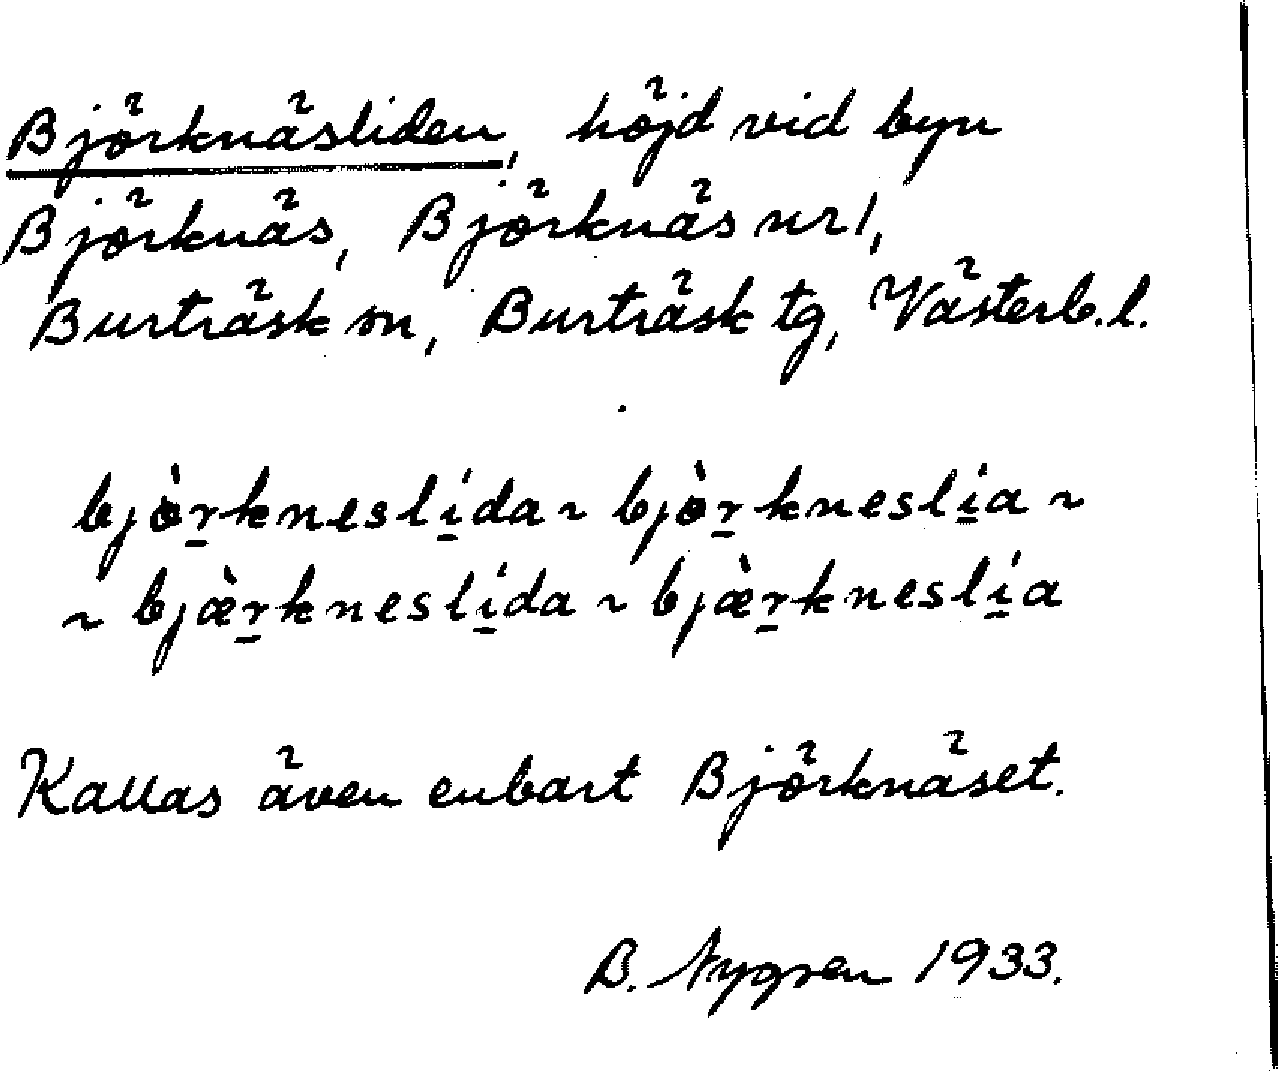 Björknäsliden, höjd vid byn
Björknäs, Björknäs nr 1,
Burträsk sn, Burträsk tg, Västerb. l.
bjòr̲kneslí̲da ~ bjòr̲kneslí̲a ~
~ bjæ̀r̲kneslí̲da ~ bjæ̀r̲kneslí̲a
Kallas även enbart Björknäset.
B. Nygren 1933.